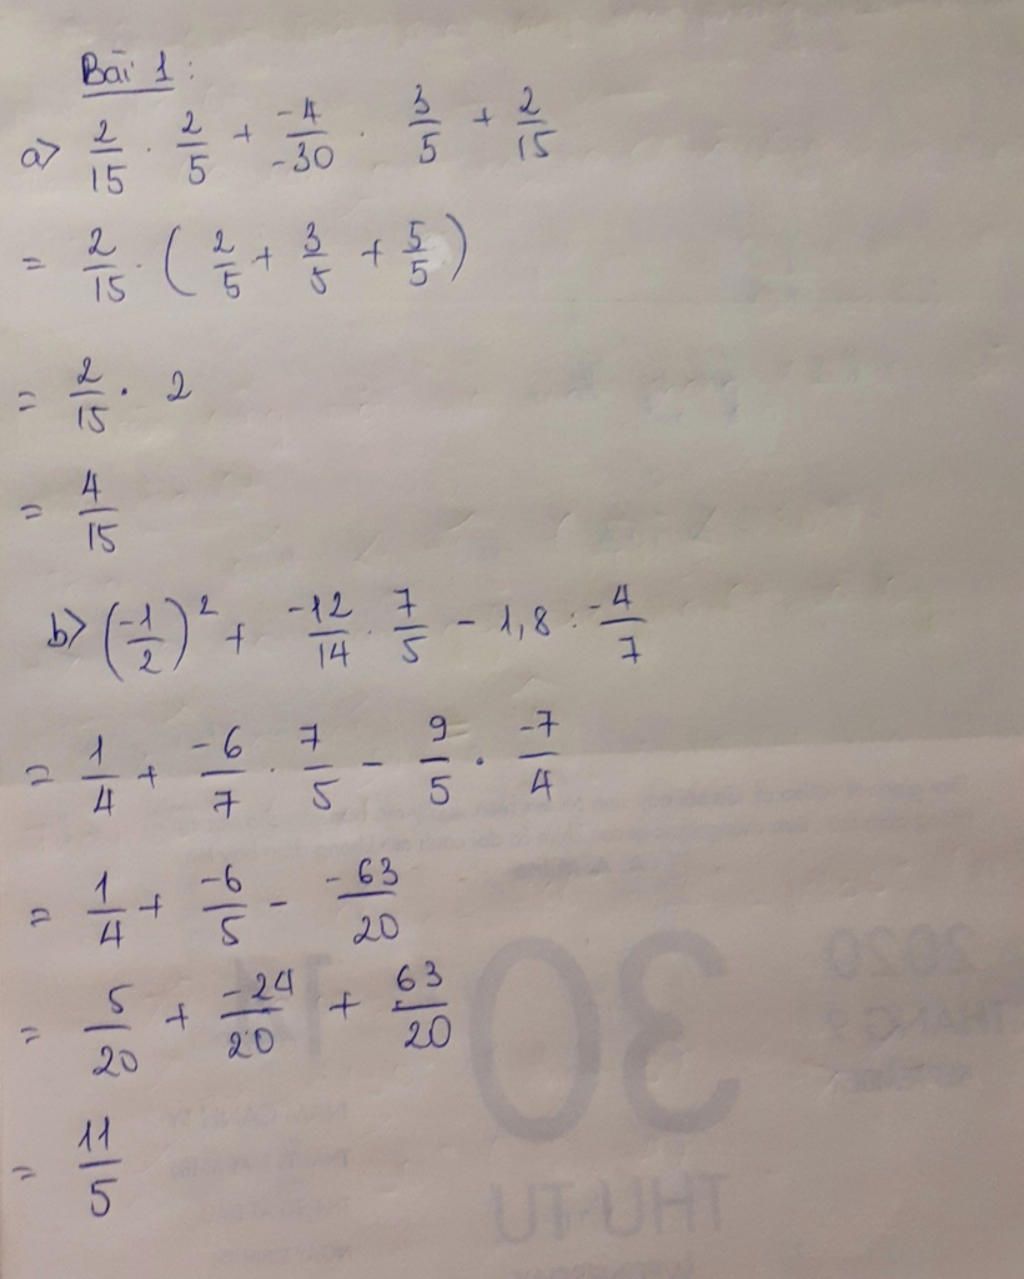 Bài 1:
a) 2/15 . 2/5 + -4/-30 . 3/5 + 2/15
= 2/15 . ( 2/5 + 3/5 + 5/5 )
= 2/15 . 2
= 4/15
b) (-1/2)² + -12/14 . 7/5 - 1,8 : -4/7
= 1/4 + -6/7 . 7/5 - 9/5 . -7/4
= 1/4 + -6/5 - -63/20
= 5/20 + -24/20 + 63/20
= 11/5
2020
30
14
THANG 9
THU TU